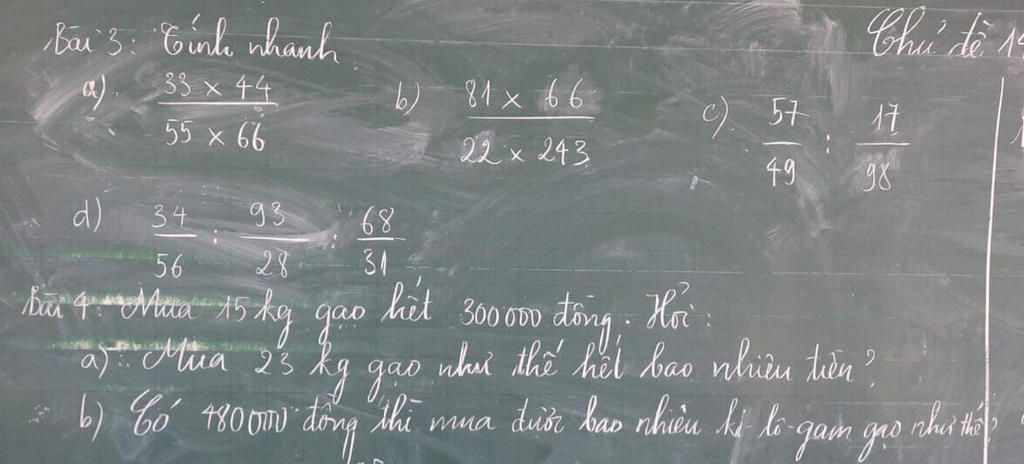 Bài 3: Tính nhanh
Chủ đề 1
a) 33 × 44 b) 81 × 66 c) 57 : 17
55 × 66 22 × 243 49 98
d) 34 : 93 : 68
56 28 31
Bài 4: Mua 15 kg gạo hết 300000 đồng. Hỏi:
a) Mua 23 kg gạo như thế hết bao nhiêu tiền?
b) Có 480000 đồng thì mua được bao nhiêu ki-lô-gam gạo như thế?